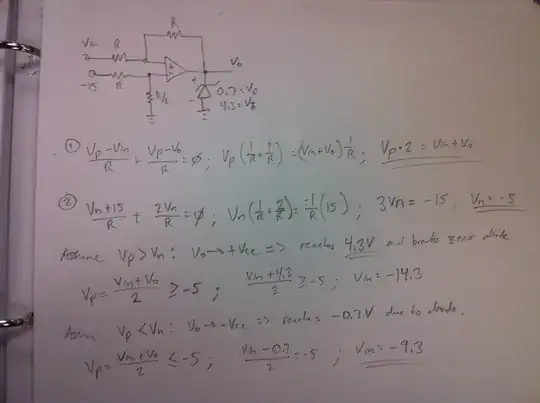 R
Vin R Vo
-15 R
+ 0.7 = VD
R/2 - 4.3 = VZ
① (Vp - Vin)/R + (Vp - Vo)/R = ∅ ; Vp(1/R + 1/R) = (Vin + Vo) 1/R ; Vp · 2 = Vin + Vo
② (Vn + 15)/R + 2Vn/R = ∅ ; Vn(1/R + 2/R) = -1/R (15) ; 3Vn = -15, Vn = -5
Assume Vp > Vn : Vo → +Vcc => reaches 4.3V and breaks zener diode
Vp = (Vin + Vo)/2 ≥ -5 ; (Vin + 4.3)/2 ≥ -5 ; Vin = -14.3
Assum Vp < Vn : Vo → -Vcc => reaches -0.7V due to diode.
Vp = (Vin + Vo)/2 ≤ -5 ; (Vin - 0.7)/2 = -5 ; Vin = -9.3